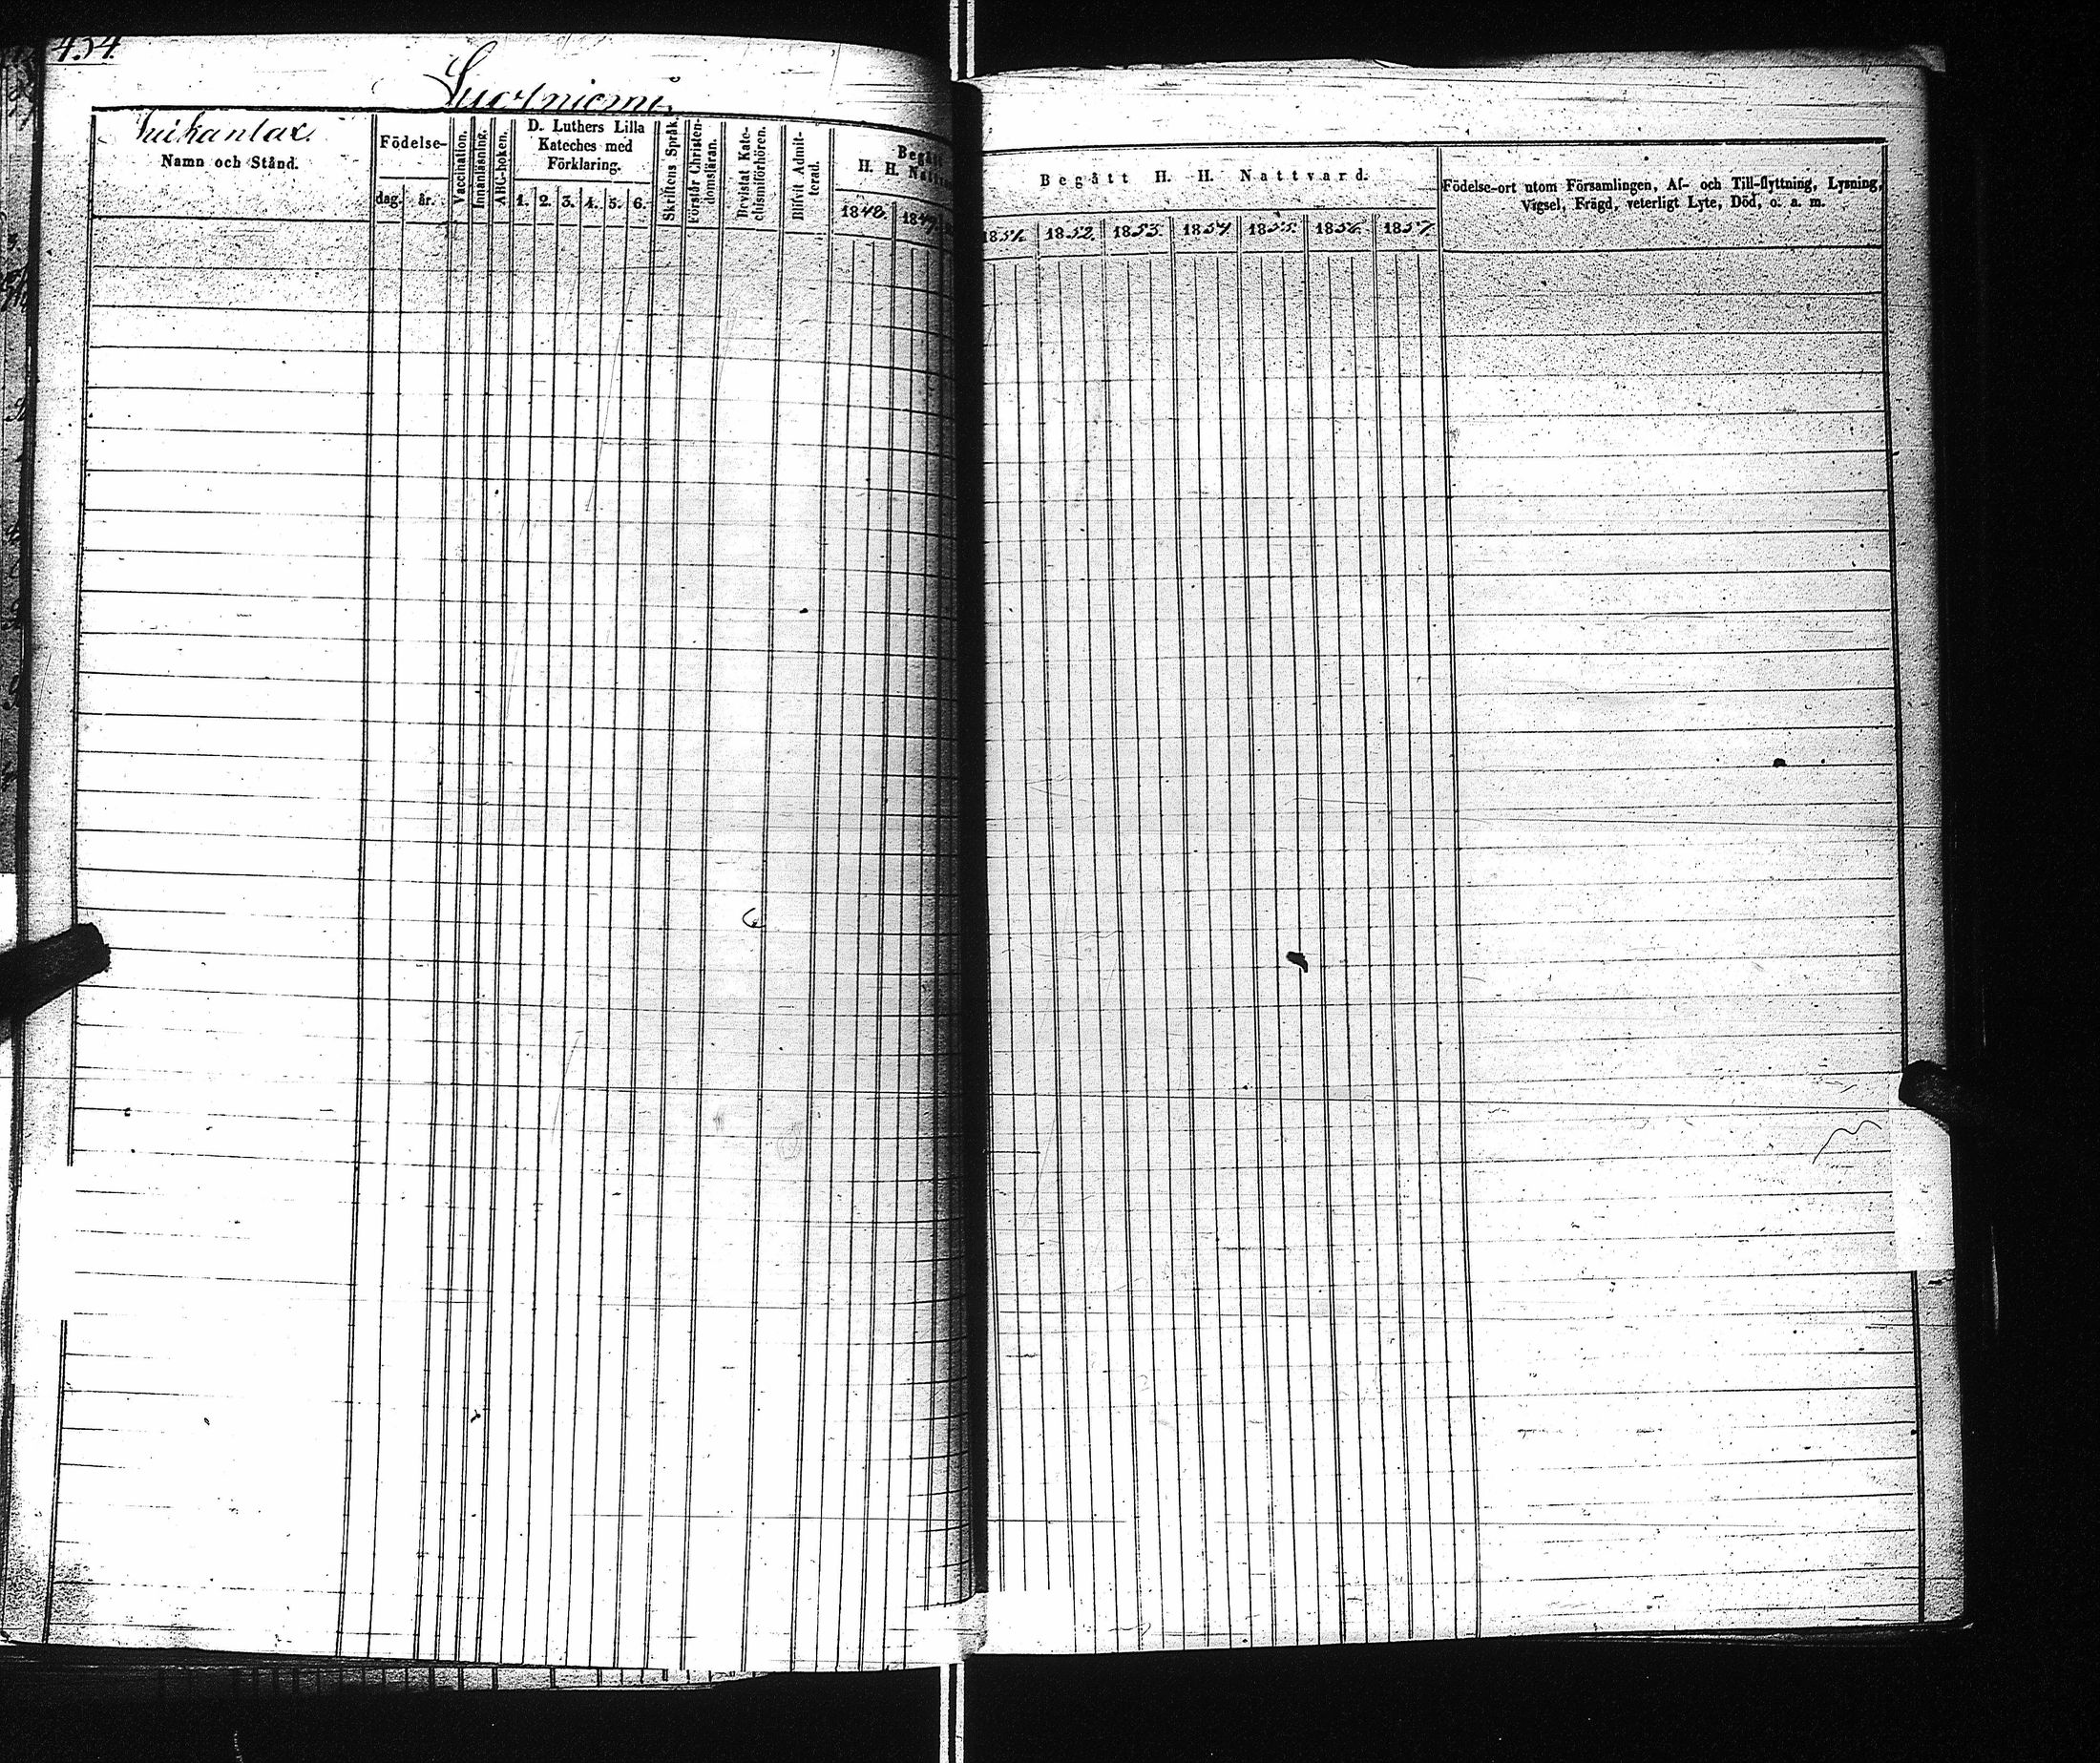 434.
Suorniemi
Namn och Stånd.
Födelse-
dag. år.
Vaccination.
Innanläsning.
ABC-boken.
D. Luthers Lilla
Kateches med
Förklaring.
1. 2. 3. 4. 5. 6.
Skriftens Språk.
Förstår Christen-
domsläran.
Bevistat Kate-
chismiförhören.
Blifvit Admit-
terad.
Begått
H. H. Nattv
1848. 1849.
Begått H. H. Nattvard.
1851. 1852. 1853. 1854 1855. 1856. 1857.
Födelse-ort utom Församlingen, Af- och Till-flyttning, Lysning,
Vigsel, Frägd, veterligt Lyte, Död, o. a. m.